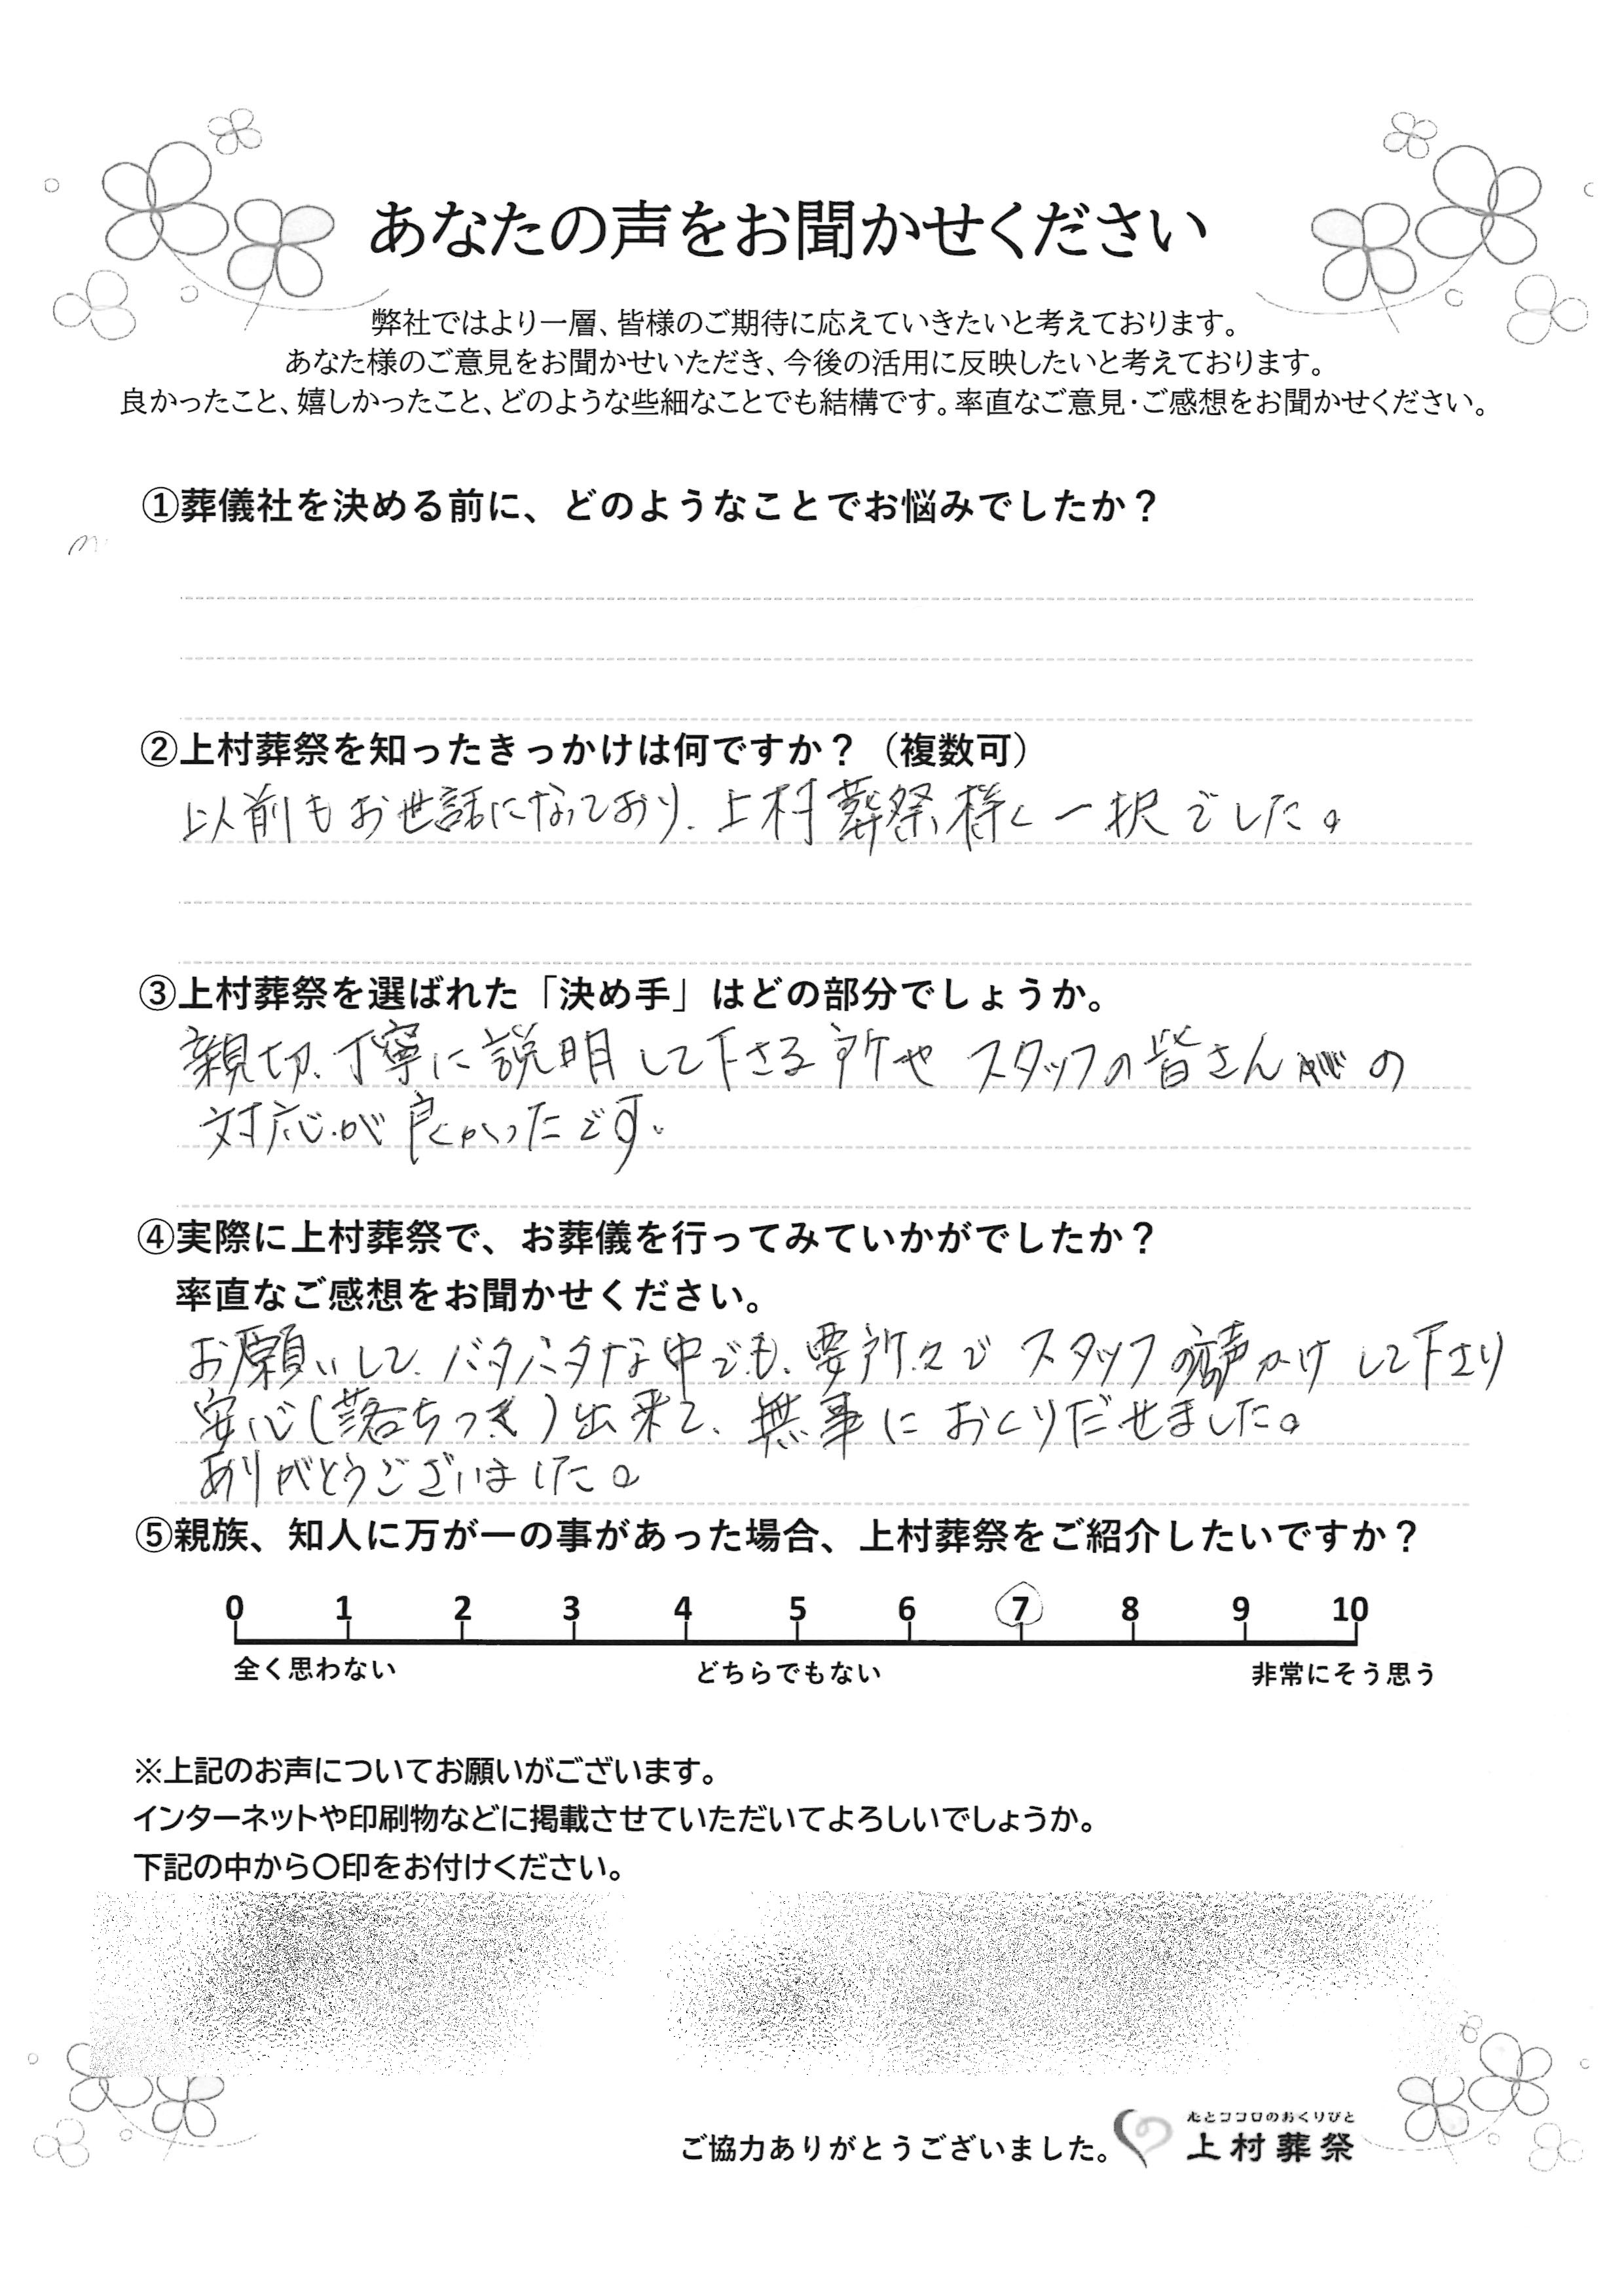 あなたの声をお聞かせください
弊社ではより一層、皆様のご期待に応えていきたいと考えております。
あなた様のご意見をお聞かせいただき、今後の活用に反映したいと考えております。
良かったこと、嬉しかったこと、どのような些細なことでも結構です。率直なご意見・ご感想をお聞かせください。
①葬儀社を決める前に、どのようなことでお悩みでしたか？
②上村葬祭を知ったきっかけは何ですか？（複数可）
以前もお世話になっており、上村葬祭様く一択でした。
③上村葬祭を選ばれた「決め手」はどの部分でしょうか。
親切、丁寧に説明して下さる所や スタッフの皆さんの
対応が良かったです。
④実際に上村葬祭で、お葬儀を行ってみていかがでしたか？
率直なご感想をお聞かせください。
お願いして、バタバタな中でも、要所々でスタッフの声かけして下さり
安心(落ちつき)出来て、無事におくりだせました。
ありがとうございました。
⑤親族、知人に万が一の事があった場合、上村葬祭をご紹介したいですか？
0 1 2 3 4 5 6 7 8 9 10
全く思わない どちらでもない 非常にそう思う
※上記のお声についてお願いがございます。
インターネットや印刷物などに掲載させていただいてよろしいでしょうか。
下記の中から〇印をお付けください。
心とココロのおくりびと
ご協力ありがとうございました。 上村葬祭